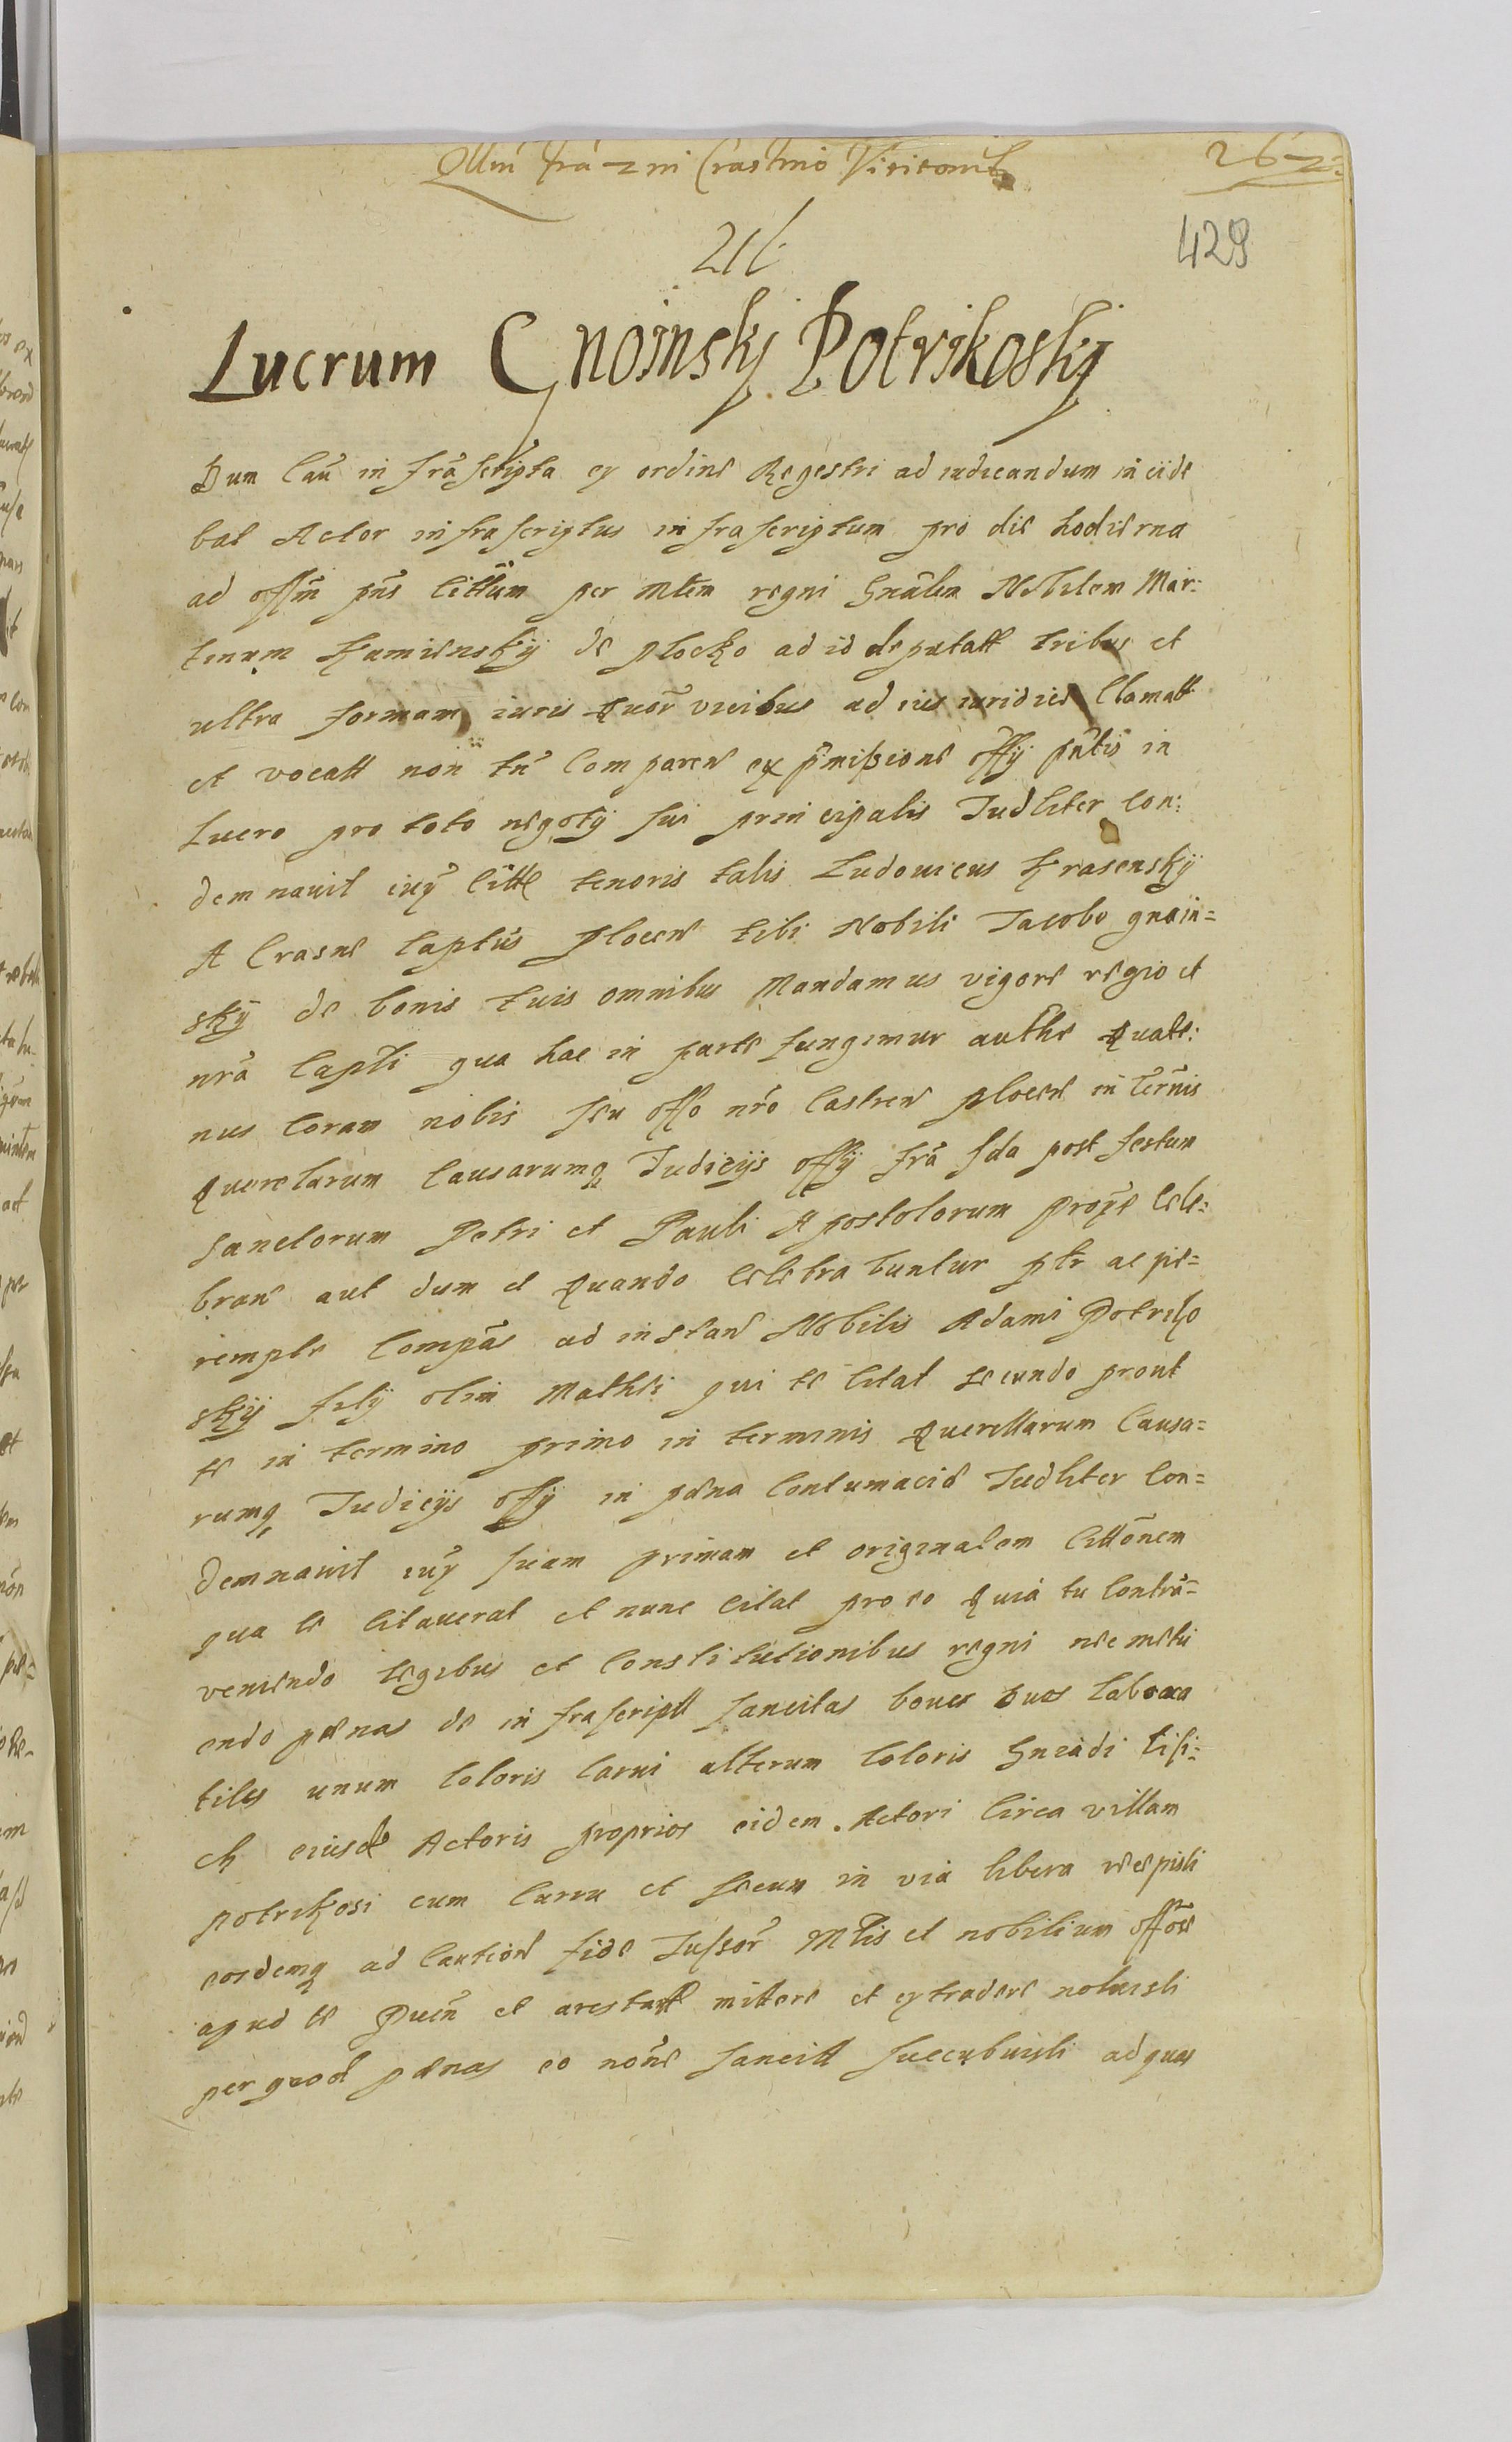 Qllru fra 2 in Crastino Visitaonis
262
21
429
Lucrum Gnoinskj Potrikoskj
Dum Cau infrascripta ex ordine Regestri ad iudicandum incide
bat Actor infrascriptus infrascriptum pro die hodierna
ad offm pns cittum per Mlem regni Gnalem Nobilem Mar:
tinum Kamienskÿ de plocko ad id deputatt tribus et
ultra formam iuris Quor vicibus ad ius iuridice Clamatt
et vocatt non tn Comparen ex pmissione offÿ pntis in
Lucro pro toto negotÿ sui principalis Iudliter Con:
demnavit iuxa citte tenoris talis Ludovicus Krasenskÿ
A Crasne Captus plocen tibi Nobili Iacobo gnoin=
skÿ de bonis tuis omnibus Mandamus vigore regio et
nra Capti qua hac in parte fungimur authe Quate:
nus Coram nobis seu offo nro Castren plocen in ternis
Querelarum Causarumq Iudicÿs offÿ fra sda post festum
sanctorum Petri et Pauli Apostolorum proxe Cele=
bran aut dum et Quando Celebrabuntur ptr ac pe=
rempte Compas ad instan Nobilis Adami Potriko
skÿ filÿ olim Mathei qui te citat secundo prout
te in termino primo in terminis Querellarum Causa=
rumq Iudicÿs offÿ in pena Contumacie Iudliter Con=
demnavit iux suam primam et originalem cittonem
qua te citaverat et nunc citat pro eo Quia tu Contra=
veniendo legibus et Constitutionibus regni nec metu
endo penas de infrascriptt sancitas boves duos labora
tiles unum Coloris Carni alterum Coloris Gniadi lisi=
ch eiusde Actoris proprios eidem Actori Circa villam
potrikosi cum Curru et secum in via libera recepisti
eosdemq ad Caution fide Iussor Mlis et nobilium offor
apud te Puen et arestatt mittere et extradere noluisti
per quod penas eo none sancitt succubuisti ad quas